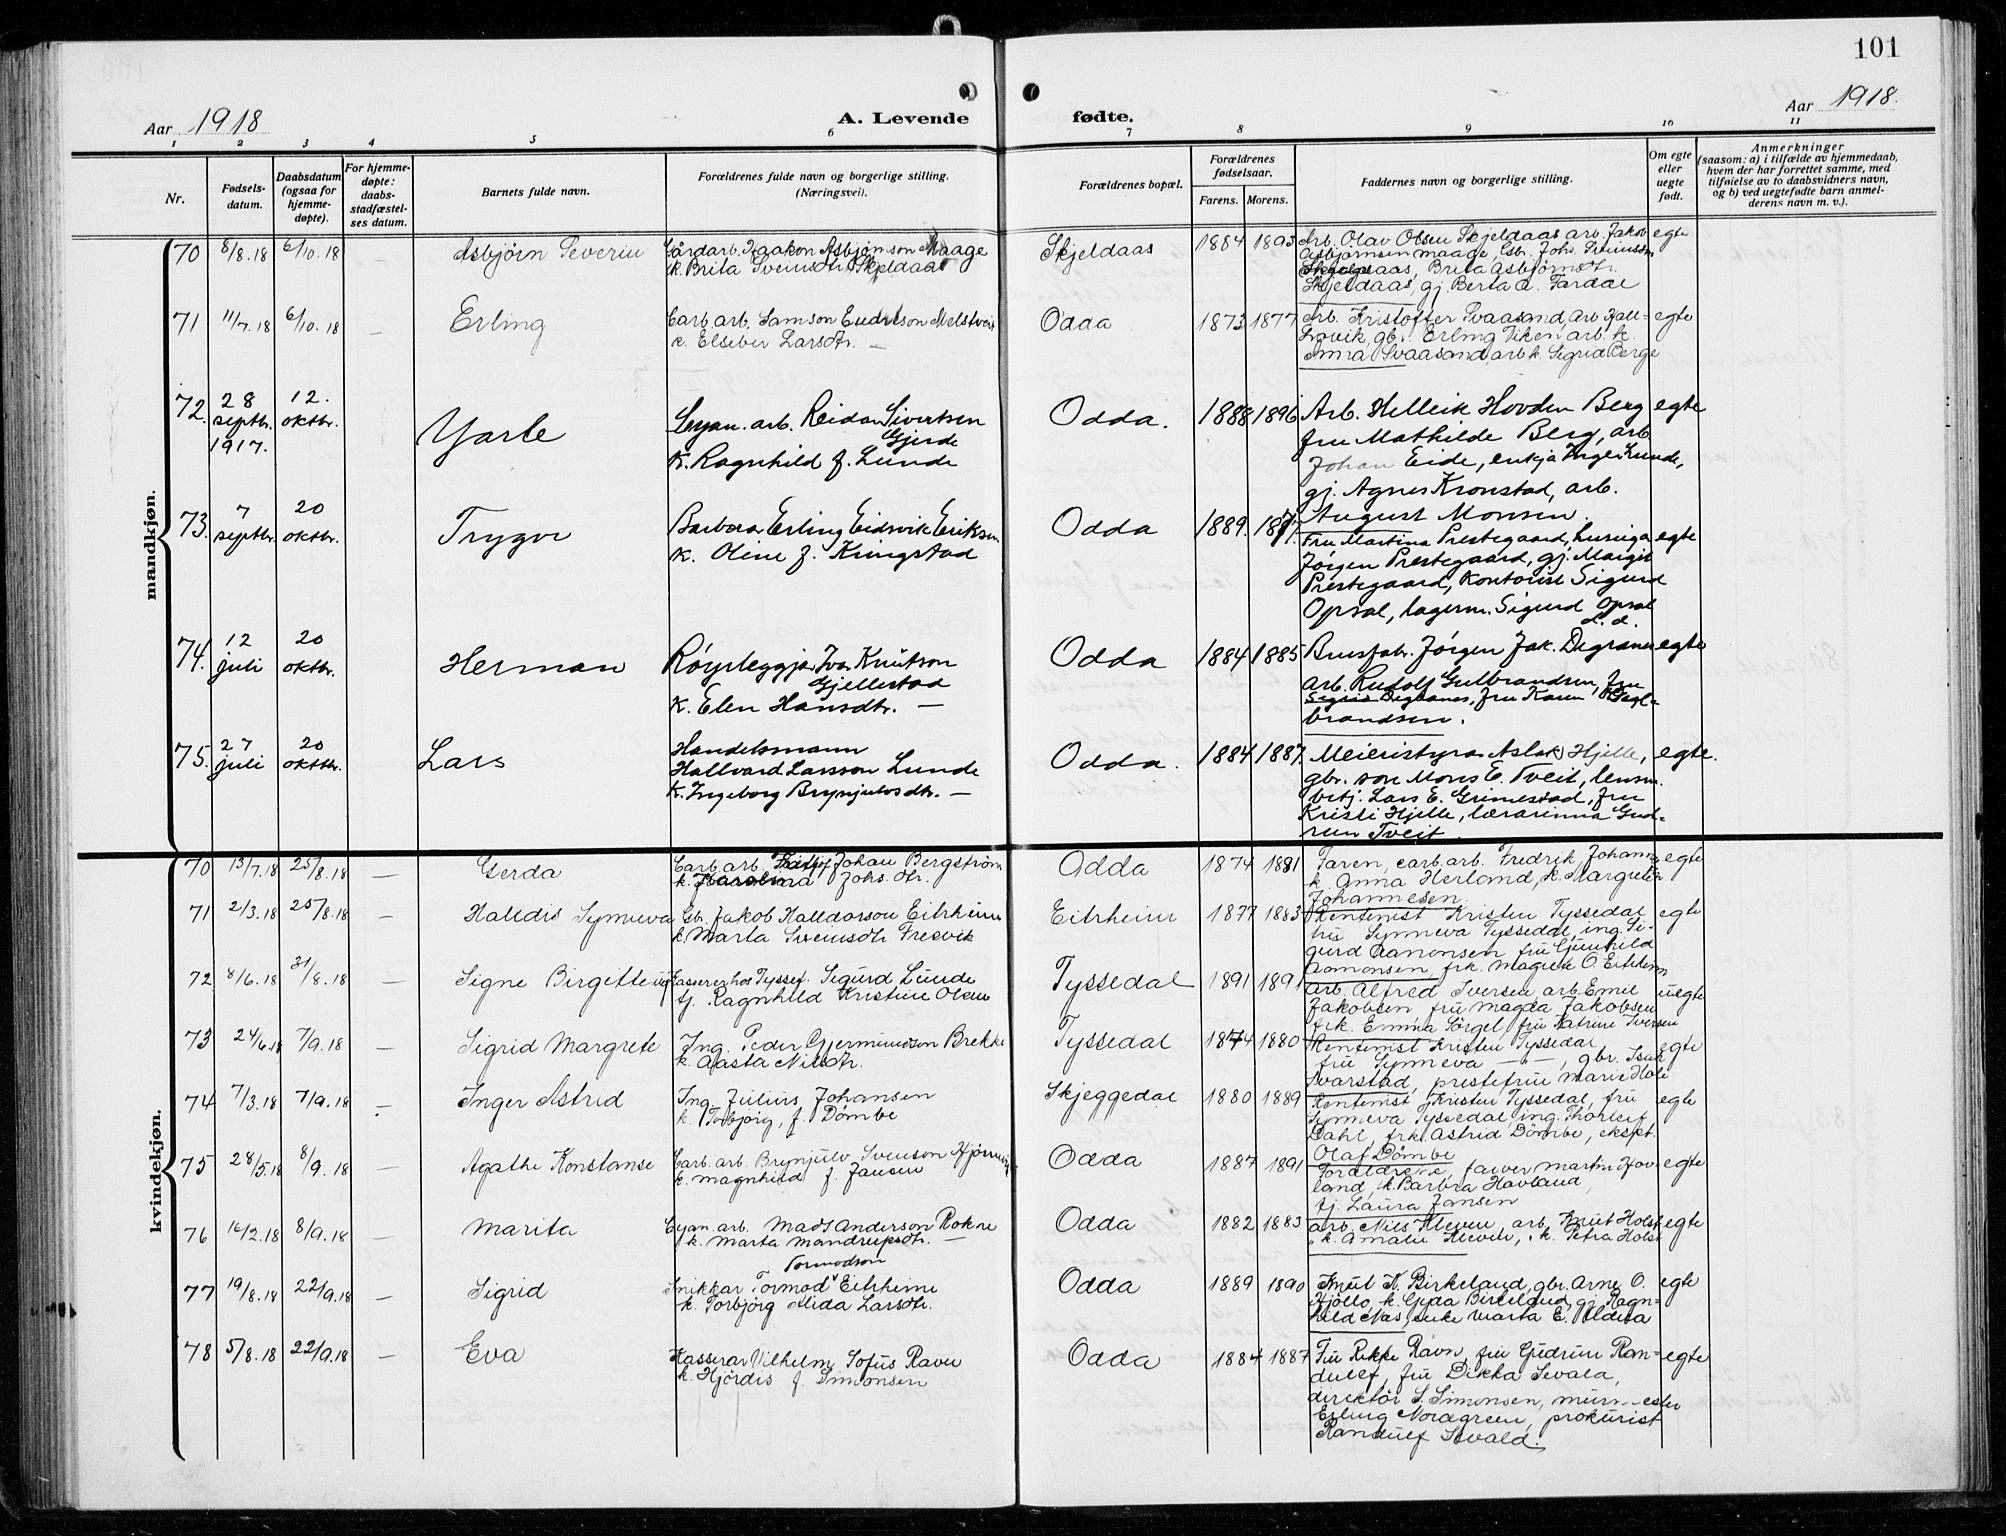 101
Aar 1918
A. Levende
fødte.
Aar 1918.
1 2 3 4 5 6 7 8 9 10 11
Nr.
Fødsels-
datum.
Daabsdatum
(ogsaa for
hjemme-
døpte).
For hjemme-
døpte:
daabs-
stadfæstel-
ses datum.
Barnets fulde navn.
Forældrenes fulde navn og borgerlige stilling.
(Næringsvei).
Forældrenes bopæl.
Forældrenes
fødselsaar.
Farens. Morens.
Faddernes navn og borgerlige stilling.
Om egte
eller
uegte
født.
Anmerkninger
(saasom: a) i tilfælde av hjemmedaab,
hvem der har forrettet samme, med
tilføielse av to daabsvidners navn,
og b) ved uegtefødte barn anmel-
derens navn m. v.).
mandkjøn.
70 8/8.18 6/10.18 — Asbjörn Severin
Gårdarb. Haakon Asbjörnson Maage
k. Brita Sveinsdtr. Skjeldaas
Skjeldaas 1884 1893
Arb. Olav Olsen Skjeldaas arb. Jakob
Asbjörnsen Maage, Gbr. Johs. Sveinsson
Skjeldaas, Brita Asbjörnsdtr.
Skjeldaas, gj. Berta A. Fardal
egte
71 11/7.18 6/10.18 — Erling
Carb. arb. Samson Melstveit
k. Elseber Larsdtr. —
Odda 1873 1877
Arb. Kristoffer Svaasand, Arb.
gbr. Erling Viken arb. k.
Anna Svaasand, arb. k. Sigrid Berge
egte
72. 28
septbr.
1917.
12.
oktbr.
Yarle
Cyan. arb. Reidar Sivertsen
Gjerde
k. Ragnhild f. Lunde
Odda. 1888 1896
Arb. Helleik Hovden Berg
fru Mathilde Berg, arb.
Johan Eide, enkja Lunde,
gj. Agnes Kronstad, arb.
August Monsen.
egte
73. 7
septbr.
20
oktbr.
Trygve
Barberar Erling Eidsvik Eriksen
k. Oline f. Kringstad
Odda 1889.
Fru Martina Prestegaard, huseiga
Jørgen Prestegaard, gj. Margit
Prestegaard, kontorist Sigurd
Opsal, lagerm. Sigurd Opsal
egte
74. 12
juli
20
oktbr.
Herman
Røyrleggjar Ivar Knutson
Gjellestad
k. Elen Hansdtr. —
Odda 1884 1885
Brusfabr. Jørgen Jak. Degranes
arb. Rudolf Gulbrandsen, fru
Sigrid Degranes, fru Karen Gul-
brandsen.
egte
75. 27
juli
20
oktbr.
Lars
Handelsmann
Hallvard Larsson Lunde
k. Ingeborg Brynjulvsdtr. —
Odda. 1884 1887
Meieristyrar Aslak Hjelle,
gbr. son Mons E. Tveit, lensm.
betj. Lars E. Grimestad, fru
Kristi Hjelle, lærarinna Gud-
run Tveit
egte.
kvindekjøn.
70 13/7.18 25/8.18 — Gerda
Carb. arb. Johan Bergström
k. Karolina Johs. dtr.
Odda 1874 1881
Faren, carb. arb. Fredrik Johannes
k. Anna Herland, k. Margrete
Johannesen
egte
71 2/3.18 25/8.18 — Halldis Synneva
Gb. Jakob Halldorson Eitrheim
k. Marta Sveinsdtr. Fresvik
Eitrheim 1877 1883
Rentenist Kristen Tyssedal
fru Synneva Tyssedal, ing. Si-
gurd Aamonsen, fru Gunhild
Aamonsen, frk. Magrete O. Eitrheim
egte
72 8/6.18 31/8.18 — Signe Birgitte
Kasserer hos Tyssef. Sigurd Lunde
tj. Ragnhild Kristine Olsen
Tyssedal 1891 1891
Arb. Alfred Iversen, arb. Emil
Jakobsen, fru Magda Jakobsen
frk. Emma Sörgel, fru Katrine Iversen
uegte
73 24/6.18 7/9.18 — Sigrid Margrete
Ing. Peder Gjermundson Brekke
k. Aasta Nilsdtr.
Tyssedal 1874 1880
Rentenist Kristen Tyssedal
fru Synneva — " —, gbr. Isak
Svarstad, prestefrue Marie Hole
egte
74 7/3.18 7/9.18 — Inger Astrid
Ing. Julius Johansen
k. Torbjörg, f. Dömbe
Skjeggedal 1880 1889
Rentenist Kristen Tyssedal, fru
Synneva Tyssedal, ing. Thorleif
Dahl, frk. Astrid Dömbe, ekspt.
Olaf Dömbe
egte
75 28/5.18 8/9.18 — Agathe Konstanse
Carb. arb. Brynjulv Svenson
k. Magnhild f. Jansen
Odda 1887 1891
Foreldrene, farver Martin Hov-
land, k. Barbra Havland,
tj. Laura Jansen
egte
76 16/2.18 8/9.18 — Marita
Cyan. arb. Mads Anderson Rokne
k. Marta Mandrupsdtr. —
Odda 1882 1883
arb. Nils Kleven, arb. Knut Holst
" k. Amalie Kleven, k. Petra Holst
egte
77 19/8.18 22/9.18 — Sigrid
Tormodson
Snikkar Tormod Eitrheim
k. Torbjörg Alida Larsdtr.
Odda 1889 1890
Knut K. Birkeland, gbr. Arne O.
Hjöllo, k. Gyda Birkeland, gj. Ragn-
hild Nås, enke Marta E.
egte
78 5/8.18 22/9.18 — Eva
Kasserar Vilhelm Sofus Ravn
k. Hjördis f. Simonsen
Odda 1884 1887
Fru Rikke Ravn, fru Gudrun Ran-
dulf, fru Dikka Sevald,
direktör S. Simonsen, murmester
Erling Nordgreen, prokurist
Randulf Sevald.
egte